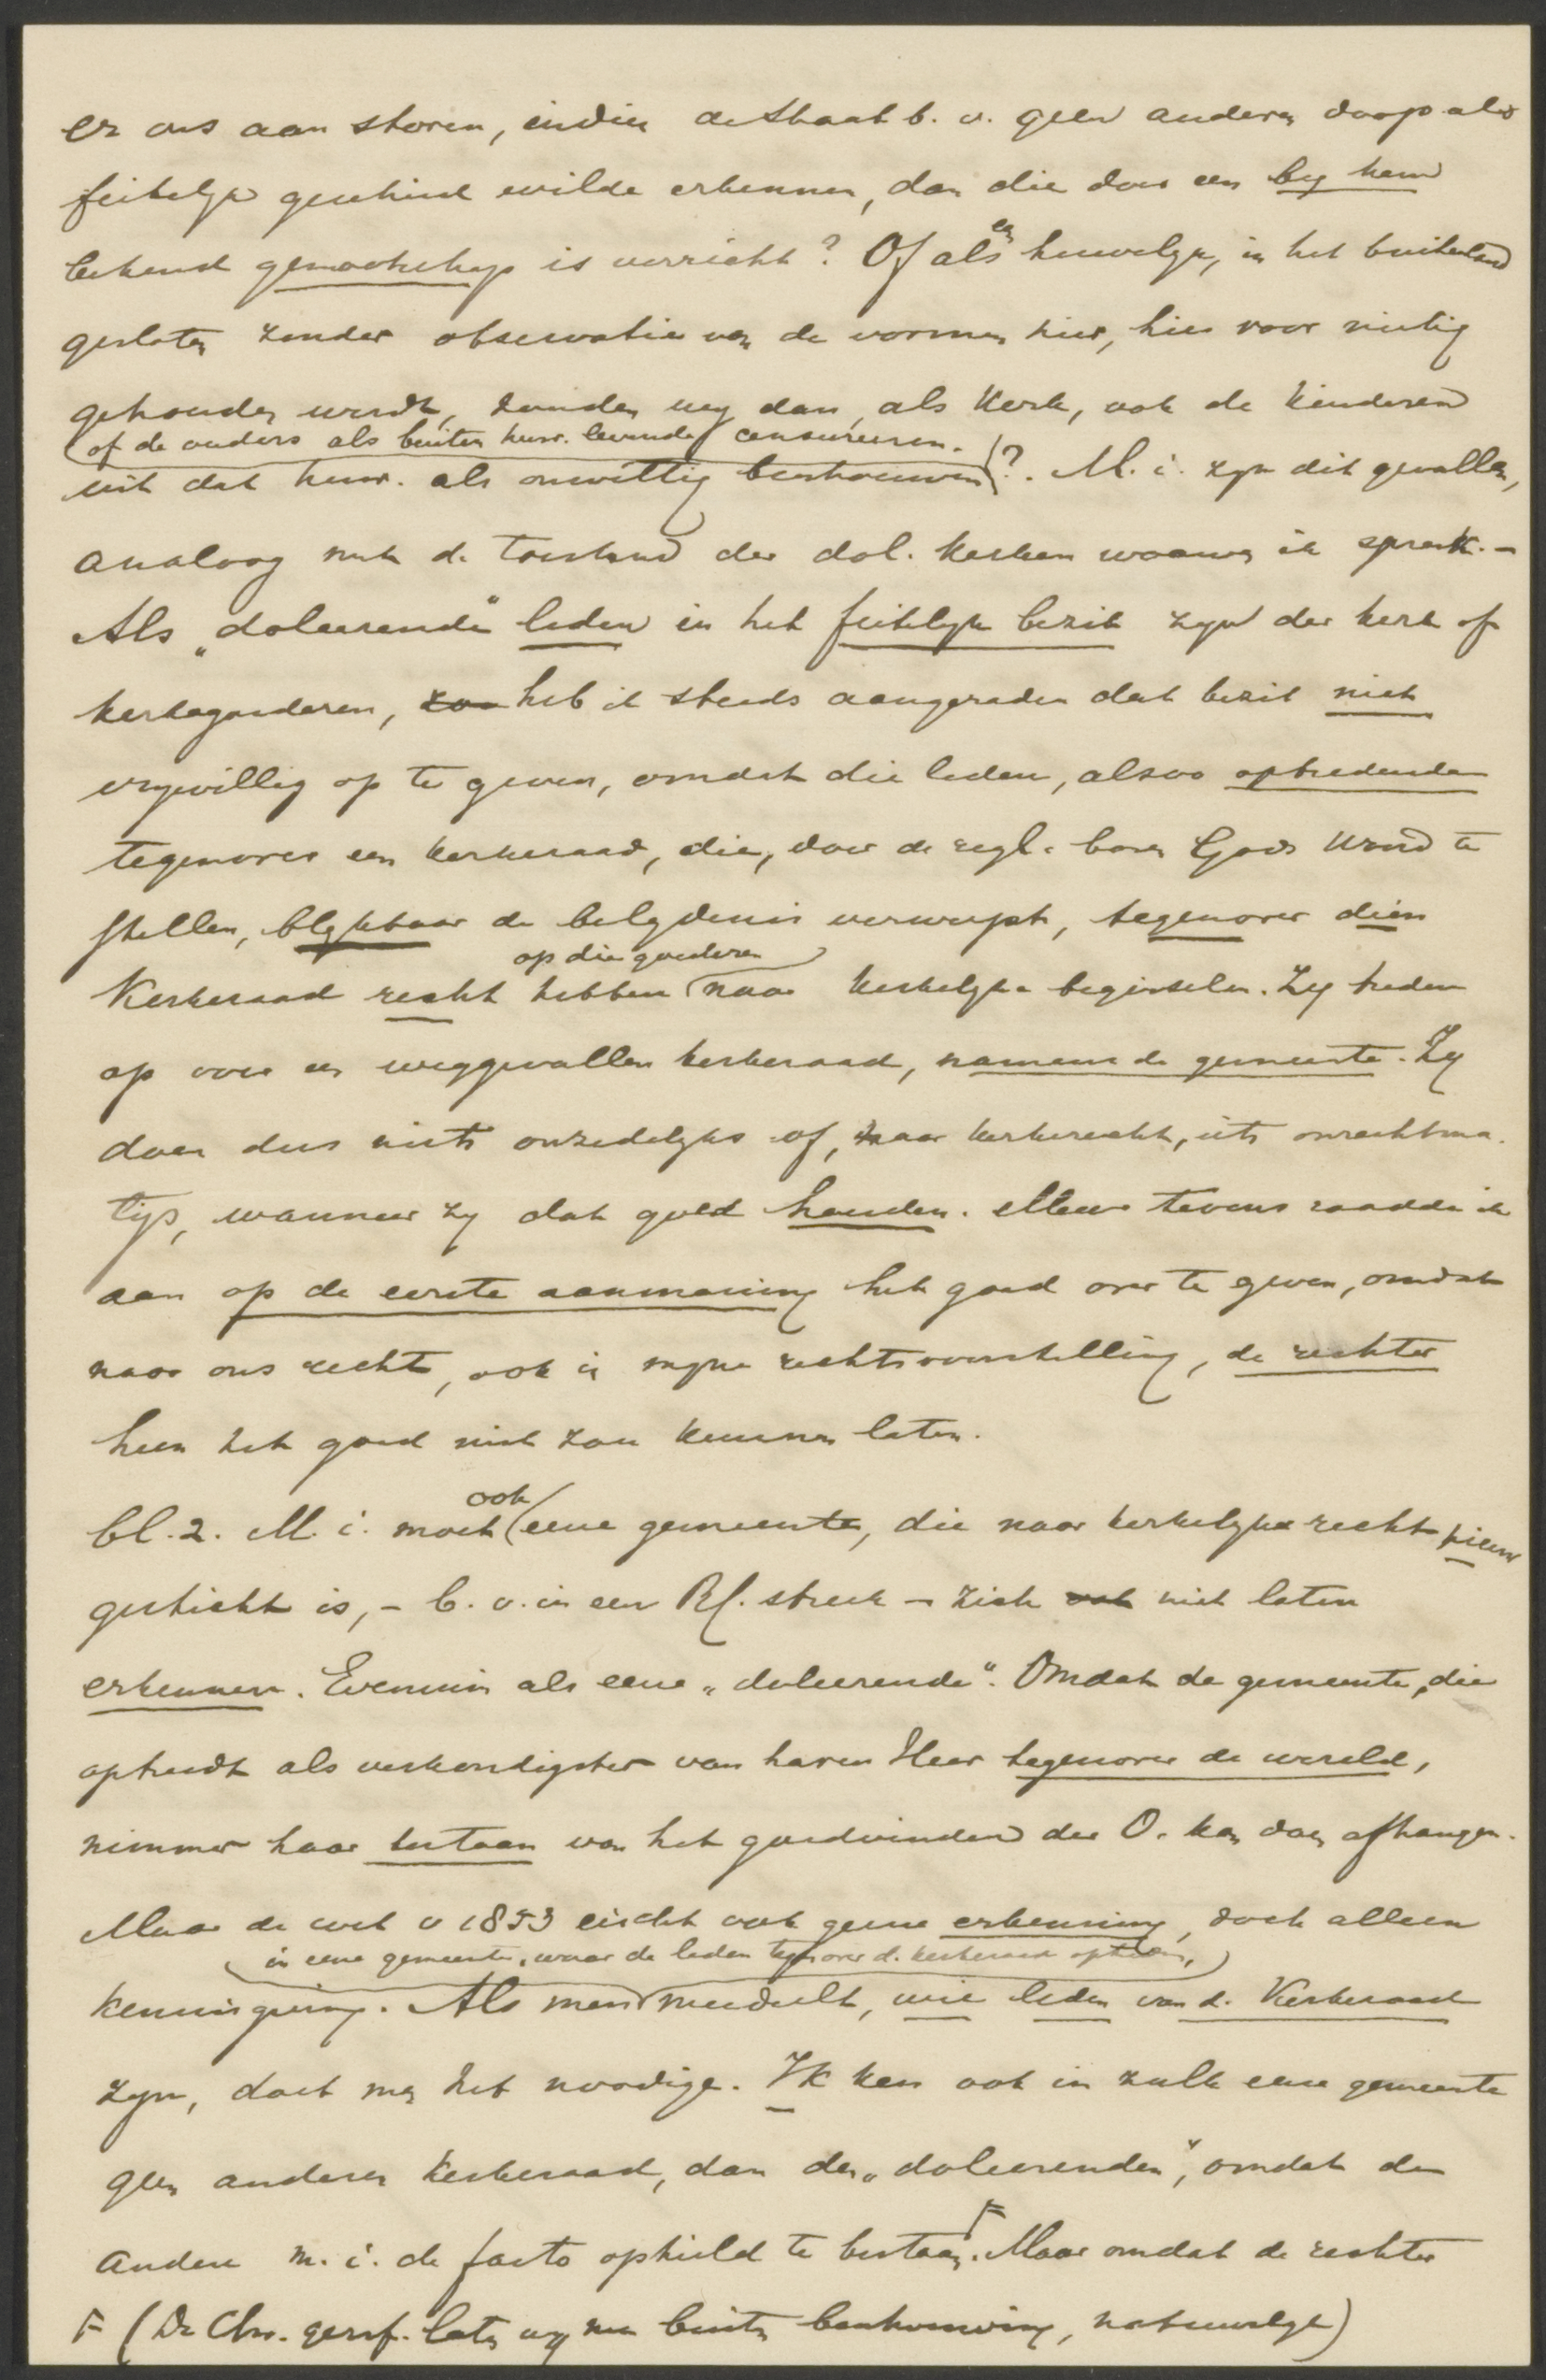 er ons aan storen, indien de Staat b.v. geen anderen doop als
feitelijk geschied wilde erkennen, dan die door een by hem
bekend genootschap is verricht? Of als een huwelyk, in het buitenland
gesloten zonder observatie van de vormen hier, hier voor nietig
gehouden wordt, zouden wy dan, als Kerk, ook de kinderen
of de ouders als buiten huw. levende censureeren.
uit dat huw. als onwettig beschouwen?. M.i. zyn dit gevallen,
analoog met de toestand der dol. kerken waarvan ik sprak. -
Als "doleerende" leden in het feitelyk bezit zyn der kerk of
kerkegoederen, zoo heb ik steeds aangeraden dat bezit niet
vrywillig op te geven, omdat die leden, alsoo optredende
tegenover een kerkeraad, die, door de regl. boven Gods Woord te
stellen, blykbaar de belydenis verwerpt, tegenover dien
op die goederen
Kerkeraad recht hebben naar kerkelyke beginselen. Zy treden
op voor een weggevallen kerkeraad, namens de gemeente. Zy
doen dus niets onzedelyks of, naar kerkrecht, iets onrechtma-
tigs, wanneer zy dat goed houden. Alleen tevens raadde ik
aan op de eerste aanmaning het goed over te geven, omdat
naar ons recht, ook in myne rechtsvoorstelling, de rechter
hun het goed niet zou kunnen laten.
ook
bl. 2. M.i. moet eene gemeente, die naar kerkelyke recht nieuw
gesticht is, - b.v. in een Rk. streek - zich ook niet laten
erkennen. Evenmin als eene "doleerende". Omdat de gemeente, die
optreedt als verkondigster van haren Heer tegenover de wereld,
nimmer haar bestaan van het goedvinden der O. kan doen afhangen.
Maar de wet v 1853 eischt ook geene erkenning, doch alleen
in eene gemeente, waar de leden tegenover d. kerkeraad optreden,
kennisgeving. Als men meedeelt, wie leden van d. Kerkeraad
zyn, doet men het noodige. Ik ken ook in zulk eene gemeente
geen anderen kerkeraad, dan den "doleerenden", omdat de
andere m.i. de facto ophield te bestaan. F Maar omdat de rechter
F (De Chr. geref. laten wy nu buiten beschouwing, natuurlyk)